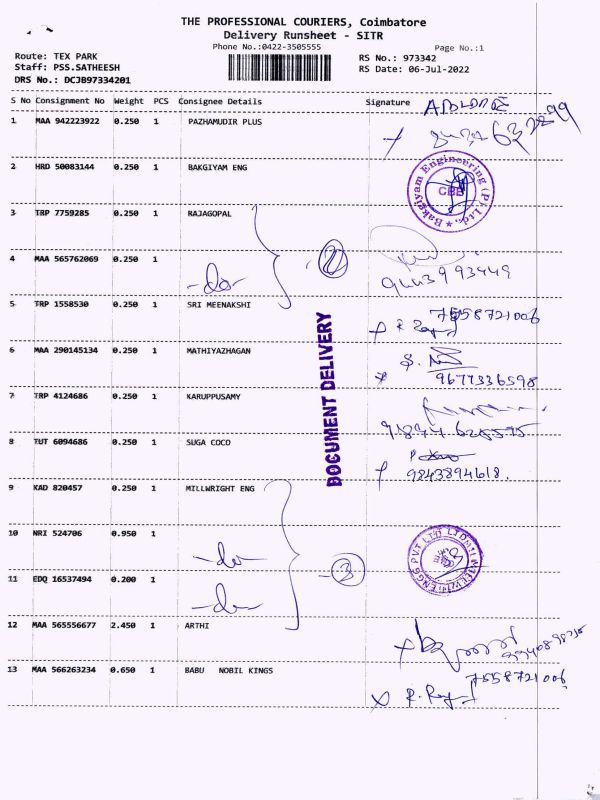 THE PROFESSIONAL COURIERS, Coimbatore
Delivery Runsheet - SITR
Phone No.:0422-3505555
Page No.:1
Route: TEX PARK
Staff: PSS.SATHEESH
DRS No.: DCJ897334201
RS No.: 973342
RS Date: 06-Jul-2022
S No Consignment No Weight PCS Consignee Details Signature
1 MAA 942223922 0.250 1 PAZHAMUDIR PLUS
2 HRD 50083144 0.250 1 BAKGIYAM ENG
Bakgiyam Engineering (P) Ltd., CBE
3 TRP 7759285 0.250 1 RAJAGOPAL
4 MAA 565762069 0.250 1 -do- 2
9443993449
5 TRP 1558530 0.250 1 SRI MEENAKSHI 7558721006
6 MAA 290145134 0.250 1 MATHIYAZHAGAN
9677336598
7 TRP 4124686 0.250 1 KARUPPUSAMY
8 TUT 6094686 0.250 1 SUGA COCO
9843894618.
DOCUMENT DELIVERY
9 KAD 820457 0.250 1 MILLWRIGHT ENG
10 NRI 524706 0.950 1 -do-
11 EDQ 16537494 0.200 1 -do- 3
12 MAA 565556677 2.450 1 ARTHI
13 MAA 566263234 0.650 1 BABU NOBIL KINGS 7558721006